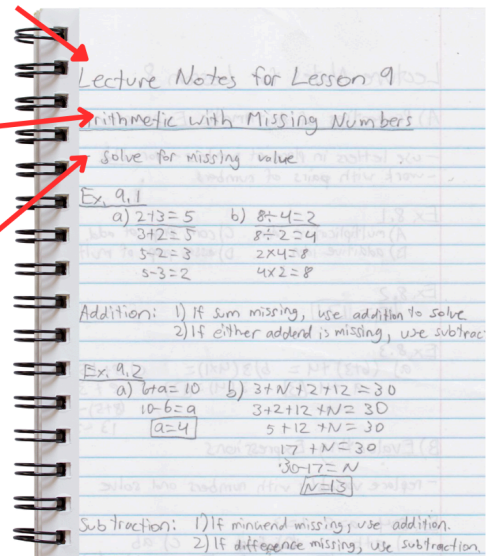 Lecture Notes for Lesson 9
Arithmetic with Missing Numbers
- solve for missing value
Ex. 9.1
a) 2+3=5 b) 8÷4=2
3+2=5 8÷2=4
5-2=3 2×4=8
5-3=2 4×2=8
Addition: 1) If sum missing, use addition to solve
2) If either addend is missing, use subtrac
Ex. 9.2
a) 6+a=10 b) 3+N+2+12=30
10-6=a 3+2+12+N=30
a=4 5+12+N=30
17+N=30
30-17=N
N=13
Subtraction: 1) If minuend missing, use addition.
2) If difference missing, use subtraction.